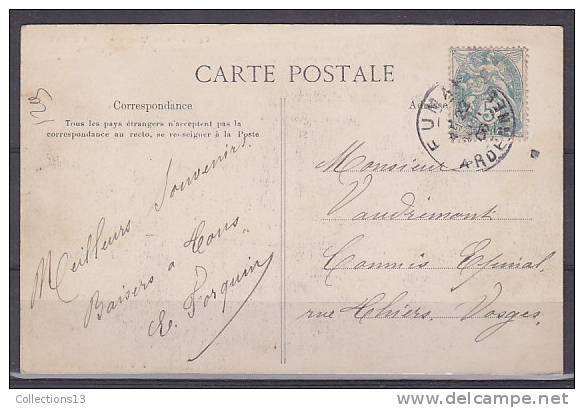 CARTE POSTALE
Correspondance
Tous les pays étrangers n'acceptent pas la
correspondance au recto, se renseigner à la Poste
Adresse
5
ARDENNES
Meilleurs Souvenirs.
Baisers a tous
E. Forquin
Monsieur
Vaudrémont
Commis Epinal,
rue Thiers. Vosges.
Collections13
www.delcampe.net